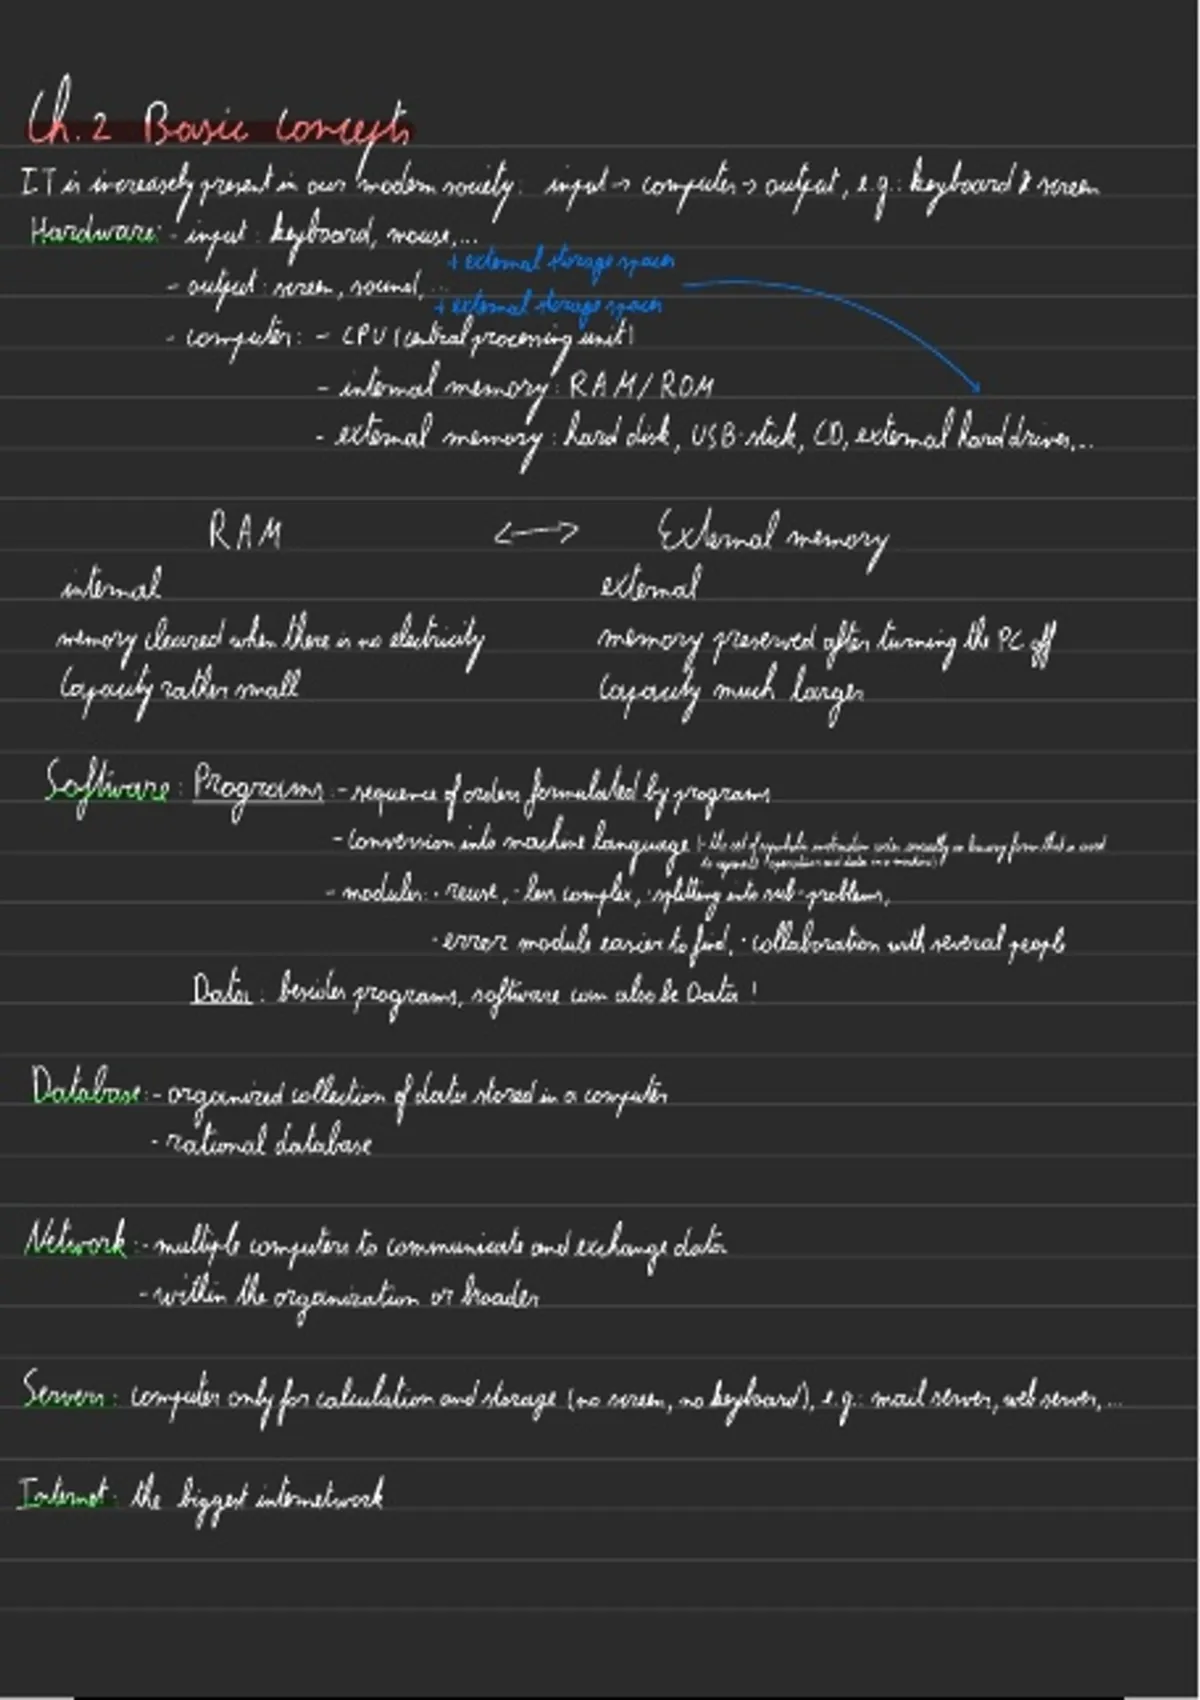 Ch. 2 Basic concepts
IT is increasely present in our modern society: input → computer → output, e.g.: keyboard & screen
Hardware: - input: keyboard, mouse,...
+ external storage spaces
- output: screen, sound, ...
+ external storage spaces
- computer: - CPU (central processing unit)
- internal memory: RAM/ROM
- external memory: hard disk, USB-stick, CD, external hard drives,...
RAM <-> External memory
internal external
memory cleared when there is no electricity memory preserved after turning the PC off
Capacity rather small Capacity much larger
Software: Programs: - sequence of orders formulated by programs
- conversion into machine language (= the set of symbolic instruction in binary form that is used
to
- modules: · reuse, · less complex, · splitting into sub-problems,
· error module easier to find, · collaboration with several people
Data: besides programs, software can also be Data!
Database: - organized collection of data stored in a computer
- rational database
Network: - multiple computers to communicate and exchange data
- within the organization or broader
Servers: computer only for calculation and storage (no screen, no keyboard), e.g.: mail server, web server,...
Internet: the biggest internetwork